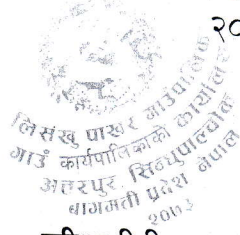 २०
लिसंखु पाखर गाउँपालिका
गाउँ कार्यपालिकाको कार्यालय
अत्तरपुर, सिन्धुपाल्चोक
बागमती प्रदेश नेपाल
२०७३